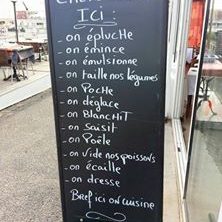 Ici :
- on épluche
- on émince
- on émulsionne
- on taille nos légumes
- on Poche
- on déglace
- on BlanchiT
- on saisit
- on Poêle
- on vide nos poissons
- on écaille
- on dresse
Bref ici on cuisine